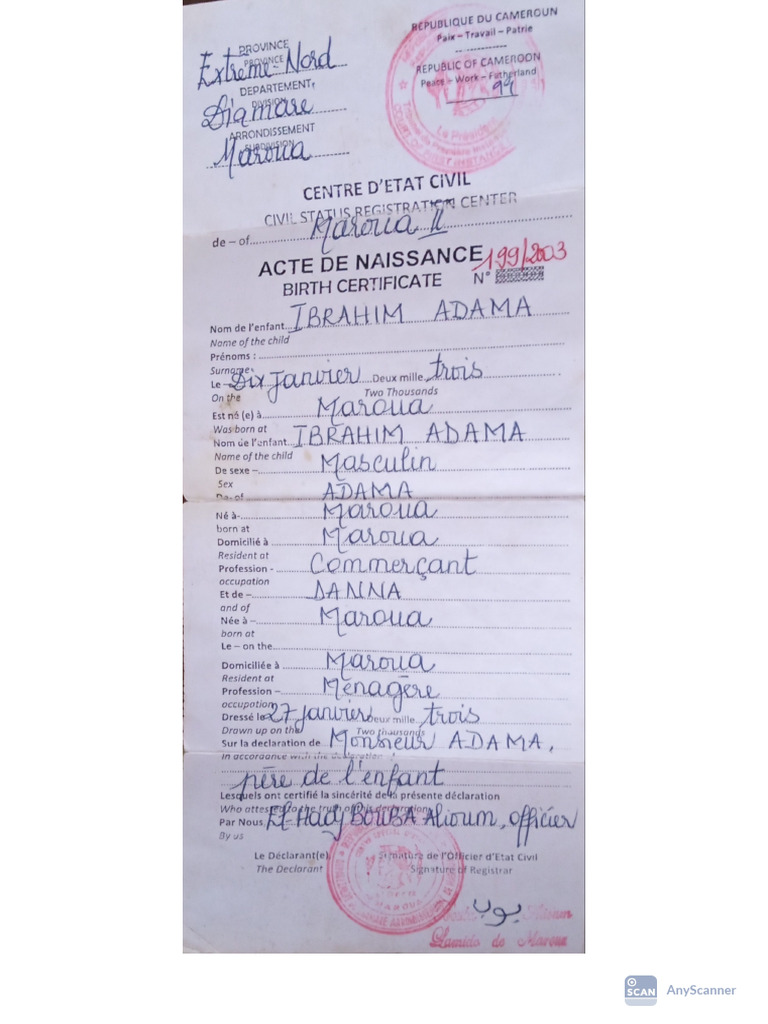 PROVINCE
PROVINCE
Extrême-Nord
DEPARTEMENT
DIVISION
Diamaré
ARRONDISSEMENT
SUBDIVISION
Maroua
REPUBLIQUE DU CAMEROUN
Paix – Travail – Patrie
REPUBLIC OF CAMEROON
Peace – Work – Fatherland
Le Président
COURT OF FIRST INSTANCE
CENTRE D'ETAT CIVIL
CIVIL STATUS REGISTRATION CENTER
de – of Maroua II
ACTE DE NAISSANCE 199/2003
BIRTH CERTIFICATE N°
Nom de l'enfant IBRAHIM ADAMA
Name of the child
Prénoms :
Surname
Le Dix Janvier Deux mille trois
On the Two Thousands
Est né (e) à Maroua
Was born at
Nom de l'enfant IBRAHIM ADAMA
Name of the child
De sexe – Masculin
Sex
De-of ADAMA
Né à- Maroua
born at
Domicilié à Maroua
Resident at
Profession - Commerçant
occupation
Et de – DANNA
and of
Née à – Maroua
born at
Le – on the
Domiciliée à Maroua
Resident at
Profession – Ménagère
occupation
Dressé le 27 janvier Deux mille trois
Drawn up on the Two thousands
Sur la declaration de Monsieur ADAMA,
In accordance with the declaration
père de l'enfant
Lesquels ont certifié la sincérité de la présente déclaration
Who attested to the truth of this declaration
Par Nous El Hadj BOUBA Alioum, officier
By us
Le Déclarant(e) Signature de l'Officier d'Etat Civil
The Declarant Signature of Registrar
MAROUA
بوب
Lamido de Maroua
SCAN AnyScanner